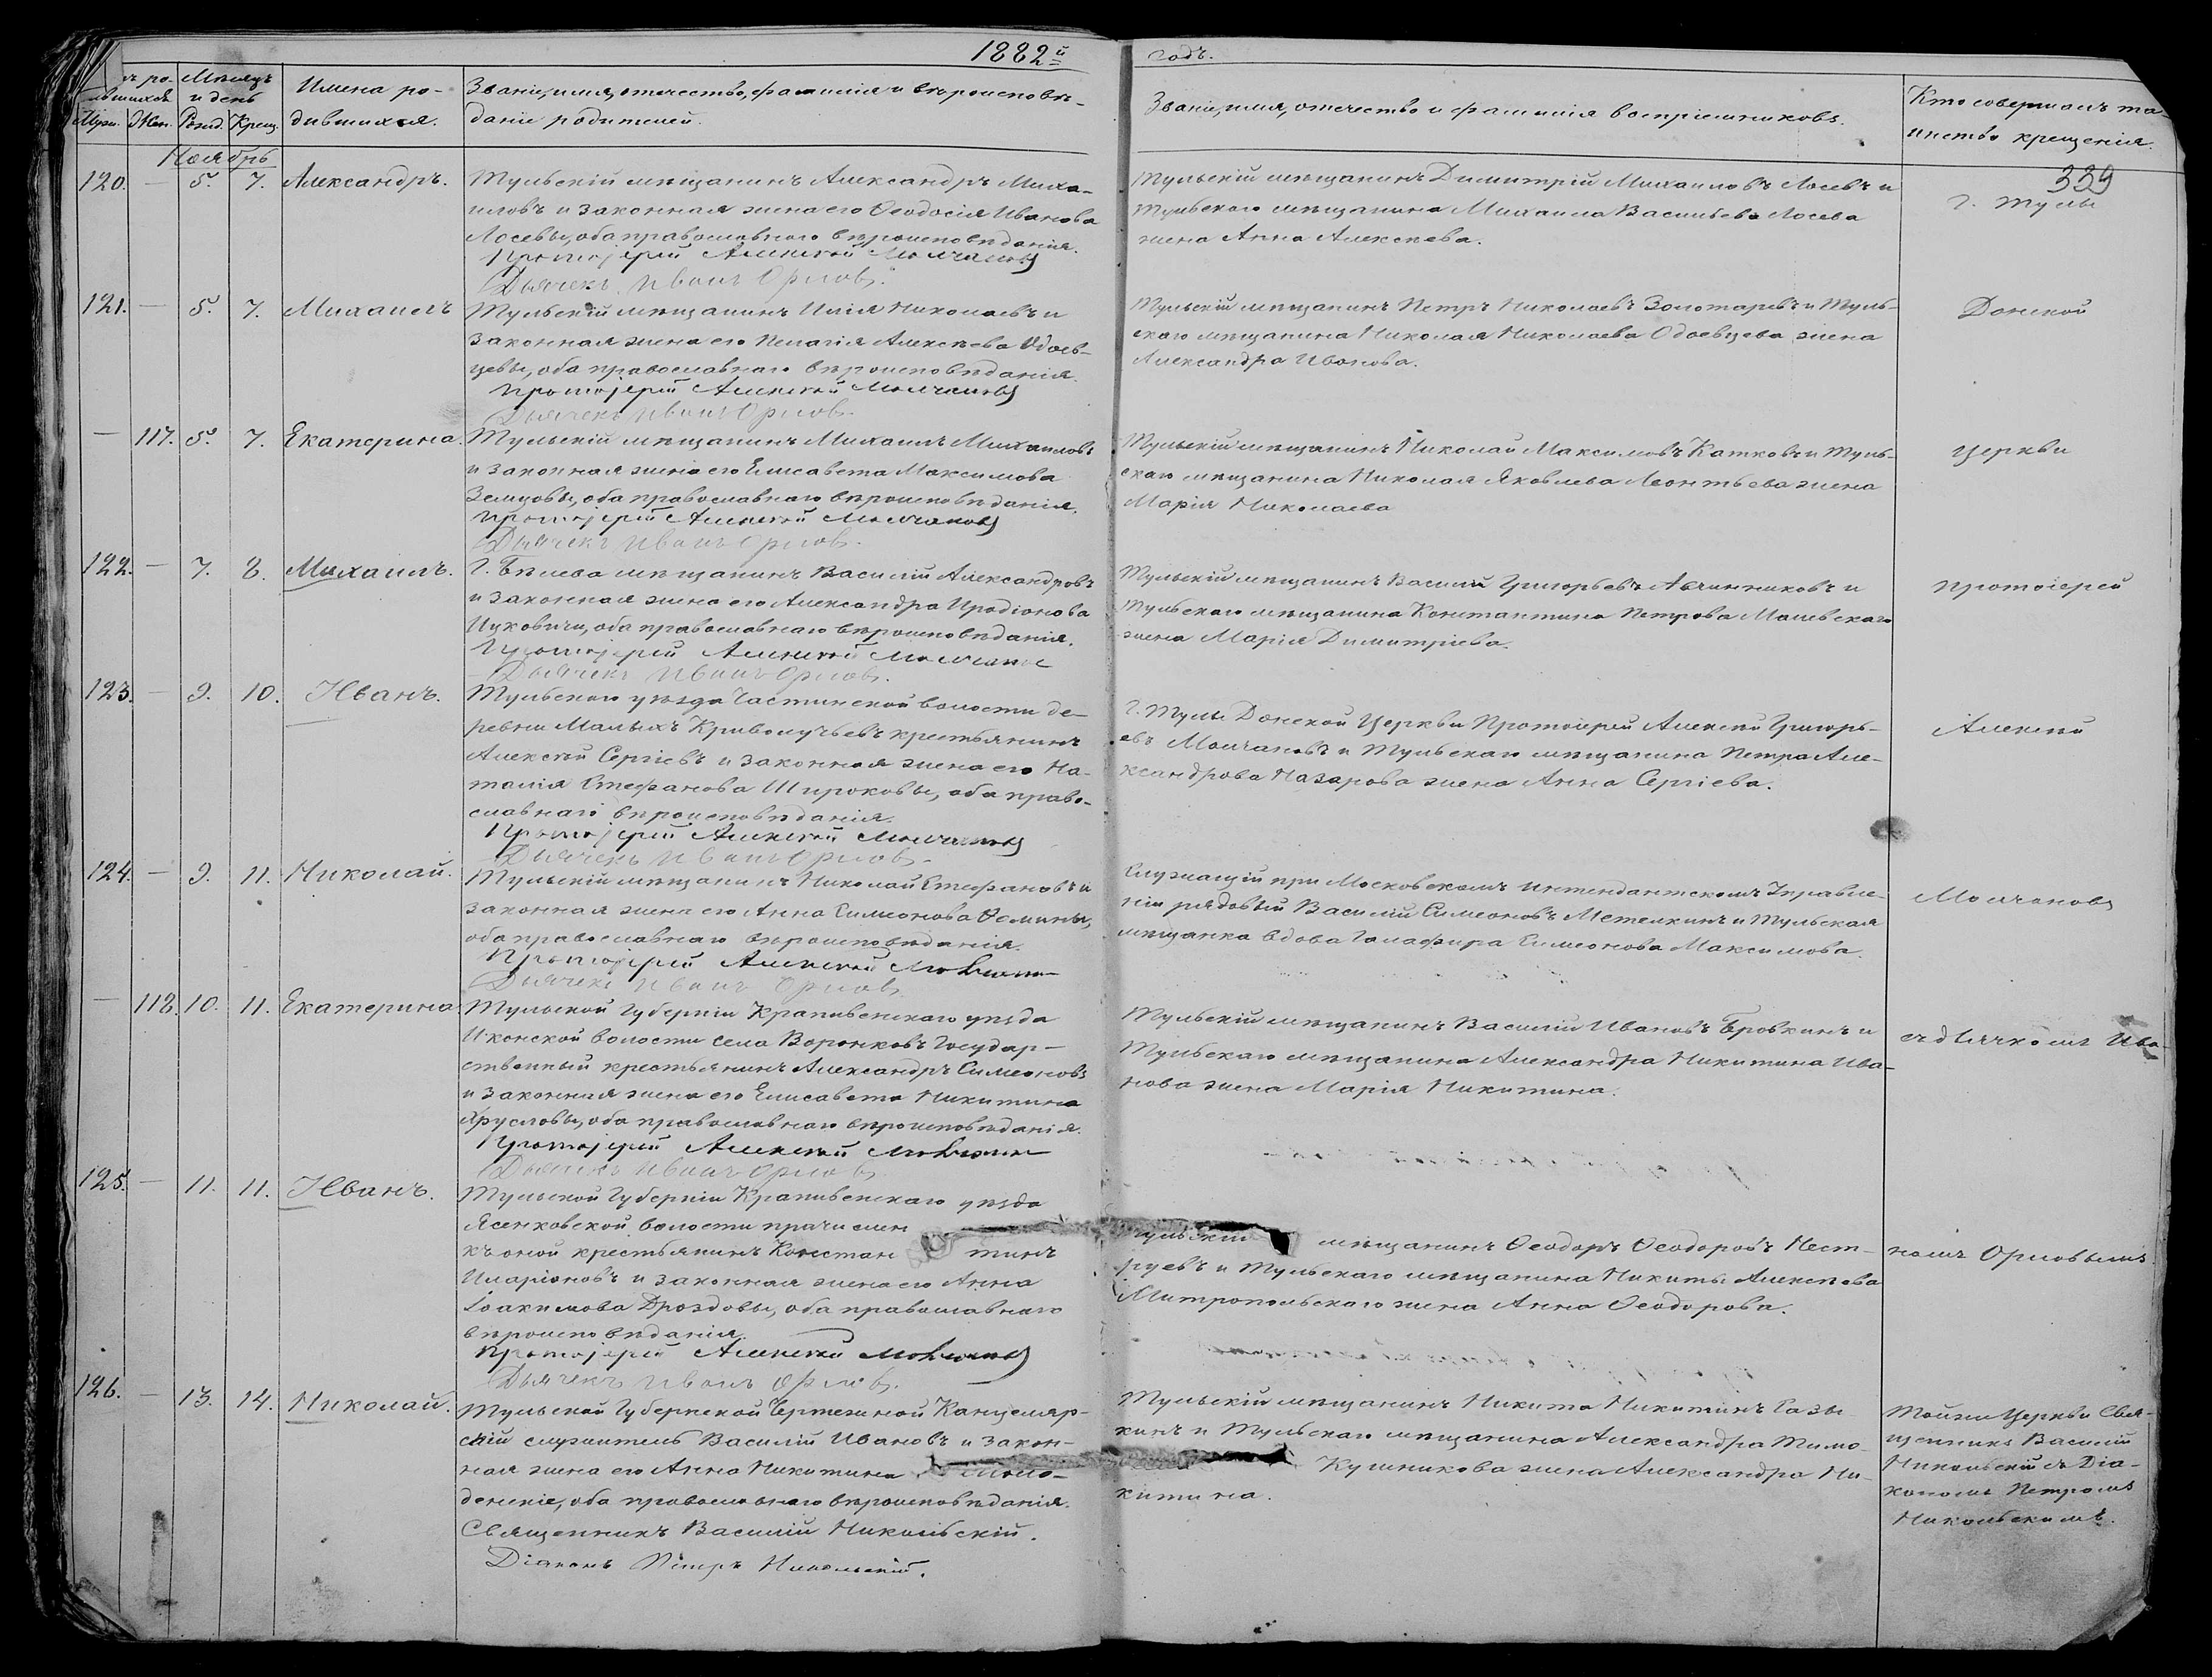 1882й годъ.
339
Счетъ ро-
дившихся
Муж. Жен.
Мѣсяцъ и день
Рожд. Крещ.
Имена родившихся.
Званіе, имя, отечество, фамилія и вѣроисповѣ-
даніе родителей.
Званіе, имя, отечество и фамилія воспріемниковъ.
Кто совершалъ та-
инство крещенія.
Ноябрь
120. — 5. 7. Александръ.
Тульскій мѣщанинъ Александръ Миха-
иловъ и законная жена его Ѳеодосія Иванова
Лосевы, оба православнаго вѣроисповѣданія.
Протоіерей Алексѣй Молчановъ
Дьячекъ Иванъ Орловъ.
Тульскій мѣщанинъ Димитрій Михаиловъ Лосевъ и
Тульскаго мѣщанина Михаила Васильева Лосева
жена Анна Алексѣева.
Г. Тулы
121. — 5. 7. Михаилъ
Тульскій мѣщанинъ Илія Николаевъ и
законная жена его Пелагія Алексѣева Одоев-
цевы, оба православнаго вѣроисповѣданія.
Протоіерей Алексѣй Молчановъ
Дьячекъ Иванъ Орловъ.
Тульскій мѣщанинъ Петръ Николаевъ Золотаревъ и Туль-
скаго мѣщанина Николая Николаева Одоевцева жена
Александра Иванова.
Донской
— 117. 5. 7. Екатерина.
Тульскій мѣщанинъ Михаилъ Михаиловъ
и законная жена его Елисавета Максимова
Земцовы, оба православнаго вѣроисповѣданія.
Протоіерей Алексѣй Молчановъ
Дьячекъ Иванъ Орловъ.
Тульскій мѣщанинъ Николай Максимовъ Катковъ и Туль-
скаго мѣщанина Николая Яковлева Леонтьева жена
Марія Николаева
церкви
122. — 7. 8. Михаилъ.
Г. Бѣлева мѣщанинъ Василій Александровъ
и законная жена его Александра Иродіонова
Цуковичи, оба православнаго вѣроисповѣданія.
Протоіерей Алексѣй Молчановъ
Дьячекъ Иванъ Орловъ.
Тульскій мѣщанинъ Василій Григорьевъ Авчинниковъ и
Тульскаго мѣщанина Константина Петрова Малевскаго
жена Марія Димитріева.
протоіерей
123. — 9. 10. Иванъ.
Тульскаго уѣзда Частинской волости де-
ревни Малыхъ Криволучьевъ крестьянинъ
Алексѣй Сергіевъ и законная жена его На-
талія Стефанова Широковы, оба право-
славнаго вѣроисповѣданія.
Протоіерей Алексѣй Молчановъ
Дьячекъ Иванъ Орловъ.
Г. Тулы Донской Церкви Протоіерей Алексѣй Григорь-
евъ Молчановъ и Тульскаго мѣщанина Петра Але-
ксандрова Назарова жена Анна Сергіева.
Алексѣй
124. — 9. 11. Николай.
Тульскій мѣщанинъ Николай Стефановъ и
законная жена его Анна Симеонова Ѳомины,
оба православнаго вѣроисповѣданія.
Протоіерей Алексѣй Молчановъ
Дьячекъ Иванъ Орловъ
Служащій при Московскомъ Интендантскомъ Управле-
ніи рядовый Василій Симеоновъ Метелкинъ и Тульская
мѣщанка вдова Гликерія Симеонова Максимова.
Молчановъ
— 118. 10. 11. Екатерина.
Тульской Губерніи Крапивенскаго уѣзда
Иконской волости села Воронковъ Государ-
ственный крестьянинъ Александръ Симеоновъ
и законная жена его Елисавета Никитина
Хрусловы, оба православнаго вѣроисповѣданія.
Протоіерей Алексѣй Молчановъ
Дьячекъ Иванъ Орловъ
Тульскій мѣщанинъ Василій Ивановъ Бровкинъ и
Тульскаго мѣщанина Александра Никитина Ива-
нова жена Марія Никитина.
съ дьячкомъ Ива-
125. — 11. 11. Иванъ.
Тульской Губерніи Крапивенскаго уѣзда
Ясенковской волости причислен
къ оной крестьянинъ Констан тинъ
Иларіоновъ и законная жена его Анна
Іоакимова Дроздовы, оба православнаго
вѣроисповѣданія.
Протоіерей Алексѣй Молчановъ
Дьячекъ Иванъ Орловъ.
Тульскій мѣщанинъ Ѳеодоръ Ѳеодоровъ Пест-
руевъ и Тульскаго мѣщанина Никиты Алексѣева
Митропольскаго жена Анна Ѳеодорова.
номъ Орловымъ
126. — 13. 14. Николай.
Тульской Губернской Чертежной Канцеляр-
скій служитель Василій Ивановъ и закон-
ная жена его Анна Никитина
денскіе, оба православнаго вѣроисповѣданія.
Священникъ Василій Никольскій.
Діаконъ Петръ Никольскій.
Тульскій мѣщанинъ Никита Никитинъ Сазы-
кинъ и Тульскаго мѣщанина Александра Тимо-
Кушникова жена Александра Ни-
китина.
Тойже Церкви Свя-
щенникъ Василій
Никольскій съ Діа-
кономъ Петромъ
Никольскимъ.